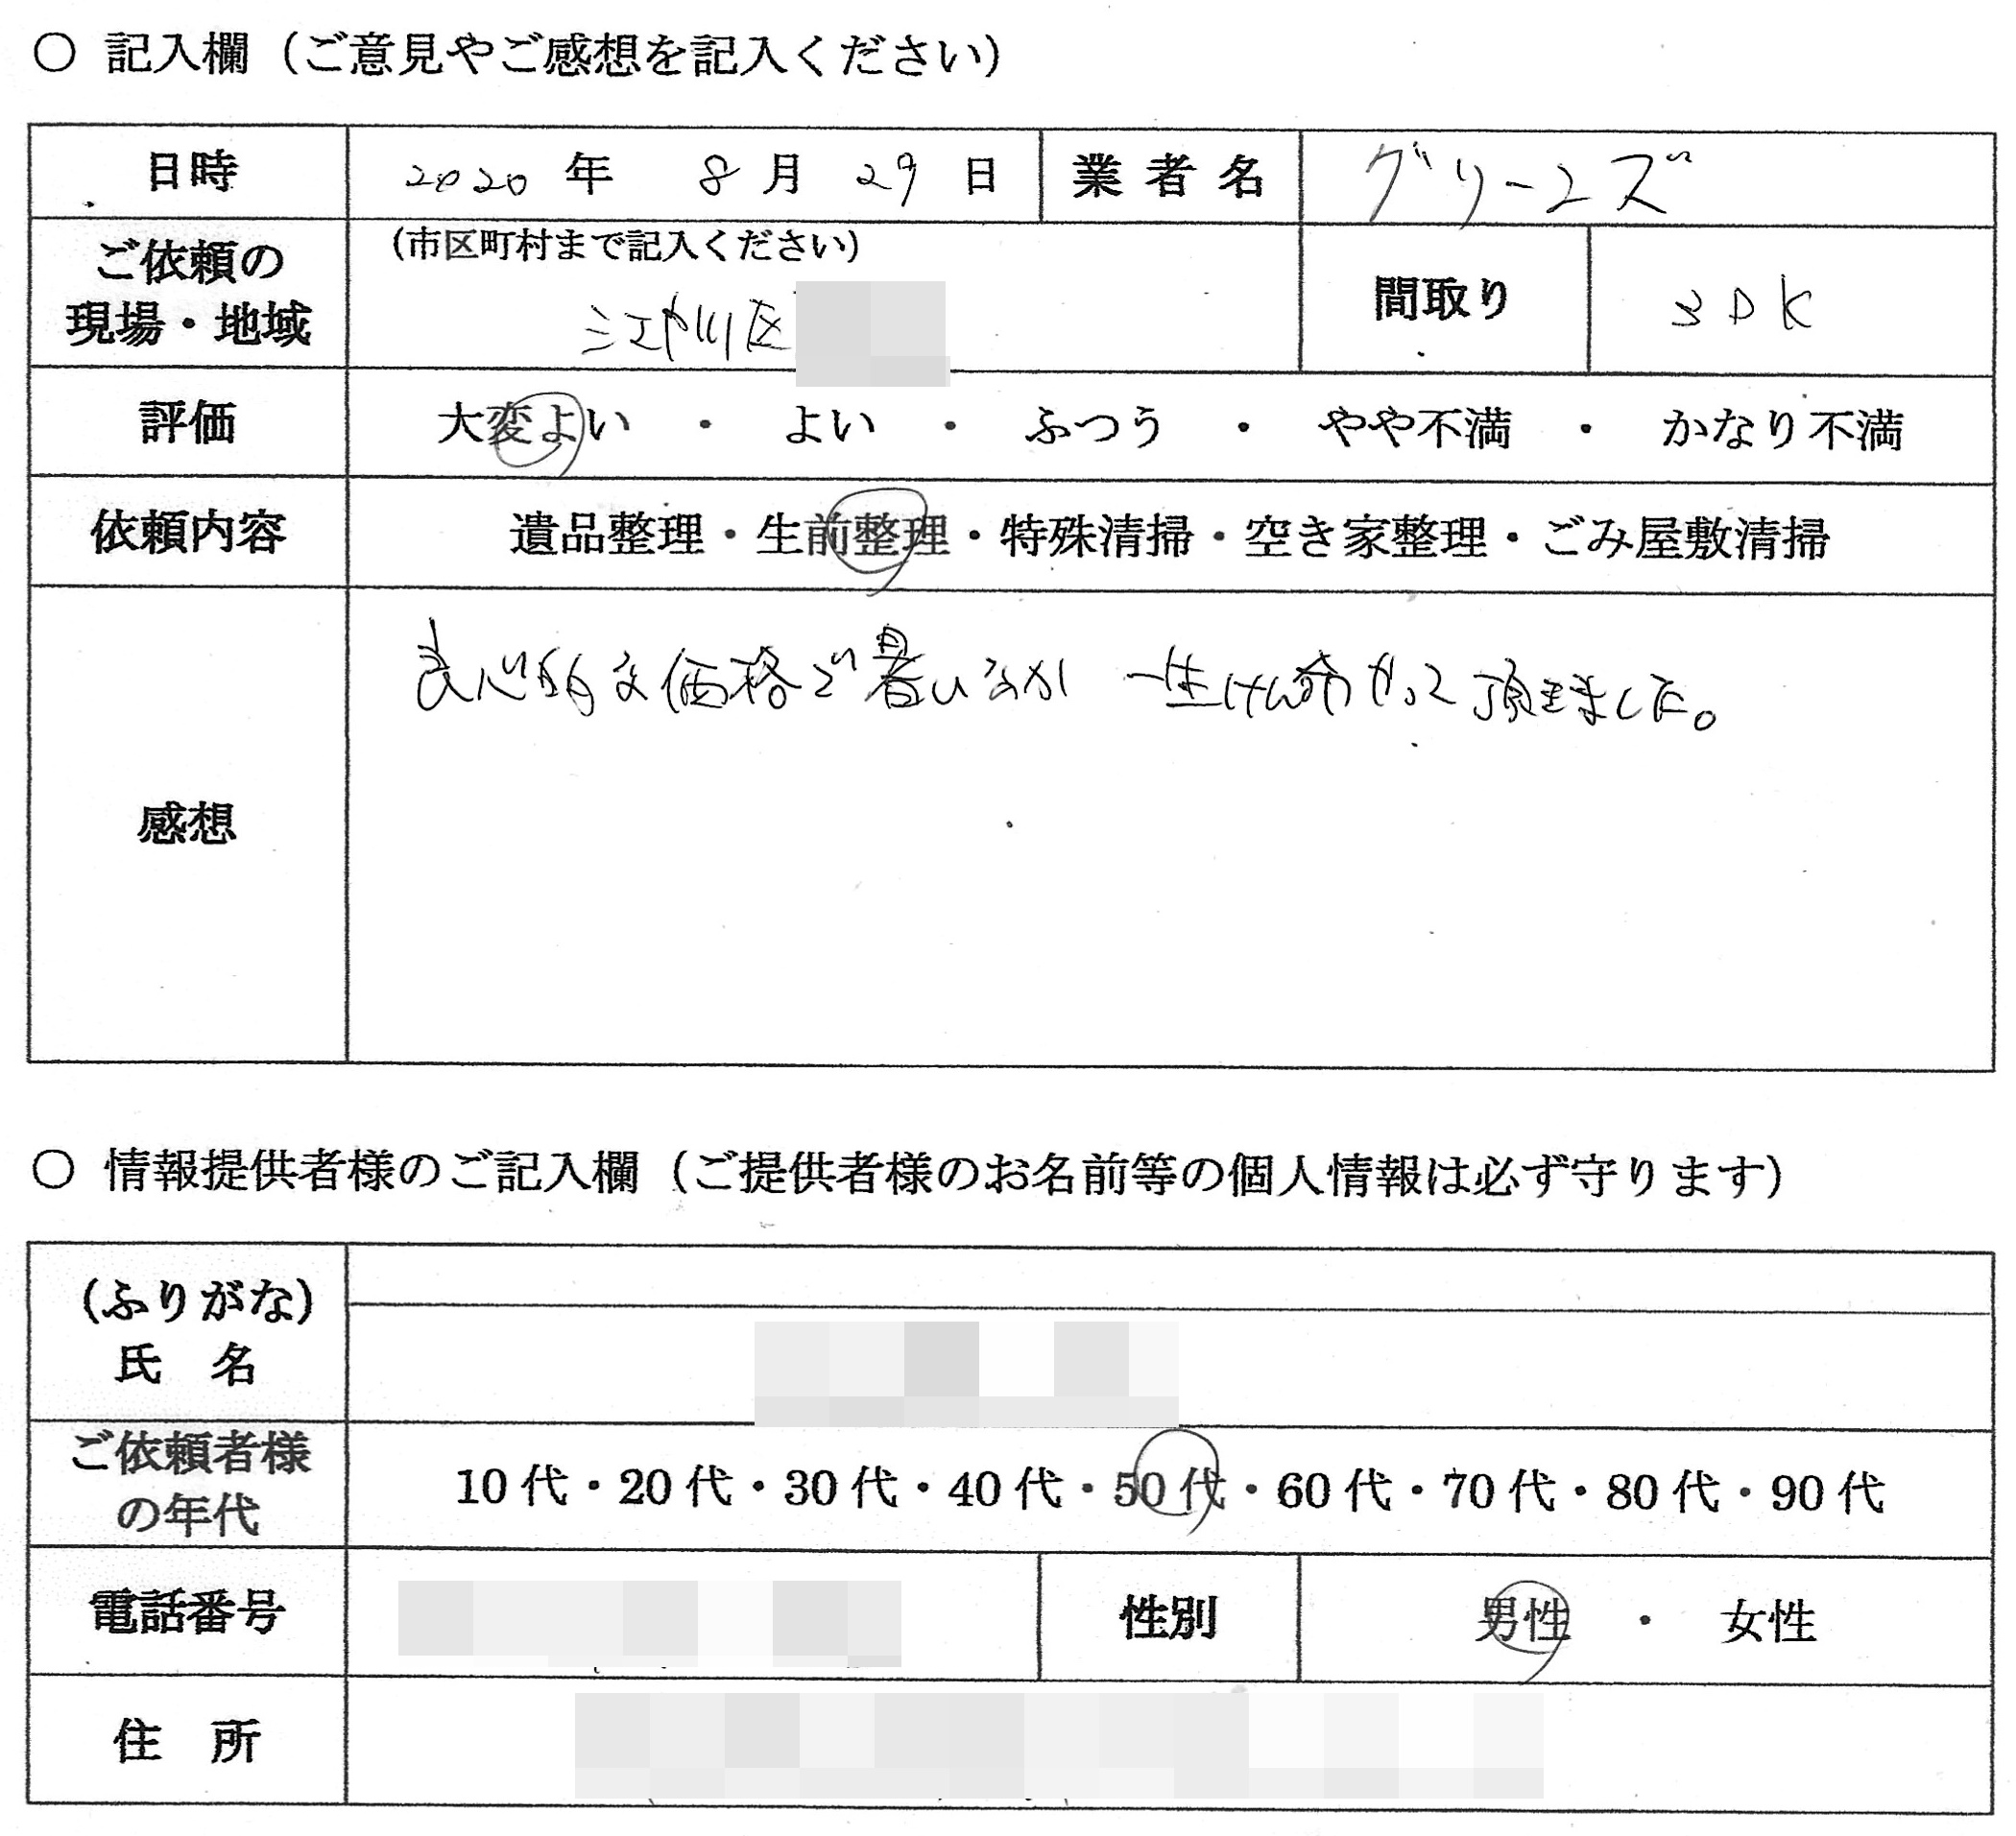 ○ 記入欄（ご意見やご感想を記入ください）
日時 2020 年 8 月 29 日 業者名 グリーンズ
ご依頼の現場・地域 (市区町村まで記入ください) 江戸川区 間取り 3DK
評価 大変よい ・ よい ・ ふつう ・ やや不満 ・ かなり不満
依頼内容 遺品整理・生前整理・特殊清掃・空き家整理・ごみ屋敷清掃
感想 良心的な価格で暑いなか 一生けん命やって頂きました。
○ 情報提供者様のご記入欄（ご提供者様のお名前等の個人情報は必ず守ります）
（ふりがな）
氏 名
ご依頼者様の年代 10代・20代・30代・40代・50代・60代・70代・80代・90代
電話番号 性別 男性 ・ 女性
住 所